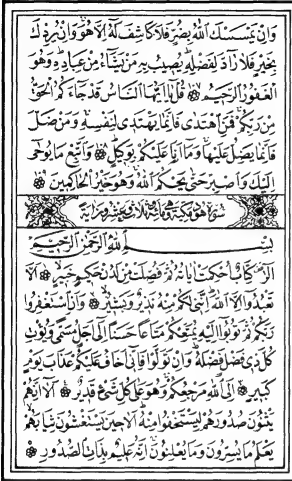 وَإِنْ يَمْسَسْكَ اللهُ بِضُرٍّ فَلَا كَاشِفَ لَهُ إِلَّا هُوَ وَإِنْ يُرِدْكَ
بِخَيْرٍ فَلَا رَادَّ لِفَضْلِهِ يُصِيبُ بِهِ مَنْ يَشَاءُ مِنْ عِبَادِهِ وَهُوَ
الْغَفُورُ الرَّحِيمُ قُلْ يَا أَيُّهَا النَّاسُ قَدْ جَاءَكُمُ الْحَقُّ
مِنْ رَبِّكُمْ فَمَنِ اهْتَدَى فَإِنَّمَا يَهْتَدِي لِنَفْسِهِ وَمَنْ ضَلَّ
فَإِنَّمَا يَضِلُّ عَلَيْهَا وَمَا أَنَا عَلَيْكُمْ بِوَكِيلٍ وَاتَّبِعْ مَا يُوحَى
إِلَيْكَ وَاصْبِرْ حَتَّى يَحْكُمَ اللهُ وَهُوَ خَيْرُ الْحَاكِمِينَ
سورة هود مكية وهي مائة وثلاث وعشرون آية
بِسْمِ اللهِ الرَّحْمٰنِ الرَّحِيمِ
الٓرٰ كِتَابٌ أُحْكِمَتْ آيَاتُهُ ثُمَّ فُصِّلَتْ مِنْ لَدُنْ حَكِيمٍ خَبِيرٍ أَلَّا
تَعْبُدُوا إِلَّا اللهَ إِنَّنِي لَكُمْ مِنْهُ نَذِيرٌ وَبَشِيرٌ وَأَنِ اسْتَغْفِرُوا
رَبَّكُمْ ثُمَّ تُوبُوا إِلَيْهِ يُمَتِّعْكُمْ مَتَاعًا حَسَنًا إِلَى أَجَلٍ مُسَمًّى وَيُؤْتِ
كُلَّ ذِي فَضْلٍ فَضْلَهُ وَإِنْ تَوَلَّوْا فَإِنِّي أَخَافُ عَلَيْكُمْ عَذَابَ يَوْمٍ
كَبِيرٍ إِلَى اللهِ مَرْجِعُكُمْ وَهُوَ عَلَى كُلِّ شَيْءٍ قَدِيرٌ أَلَا إِنَّهُمْ
يَثْنُونَ صُدُورَهُمْ لِيَسْتَخْفُوا مِنْهُ أَلَا حِينَ يَسْتَغْشُونَ ثِيَابَهُمْ
يَعْلَمُ مَا يُسِرُّونَ وَمَا يُعْلِنُونَ إِنَّهُ عَلِيمٌ بِذَاتِ الصُّدُورِ